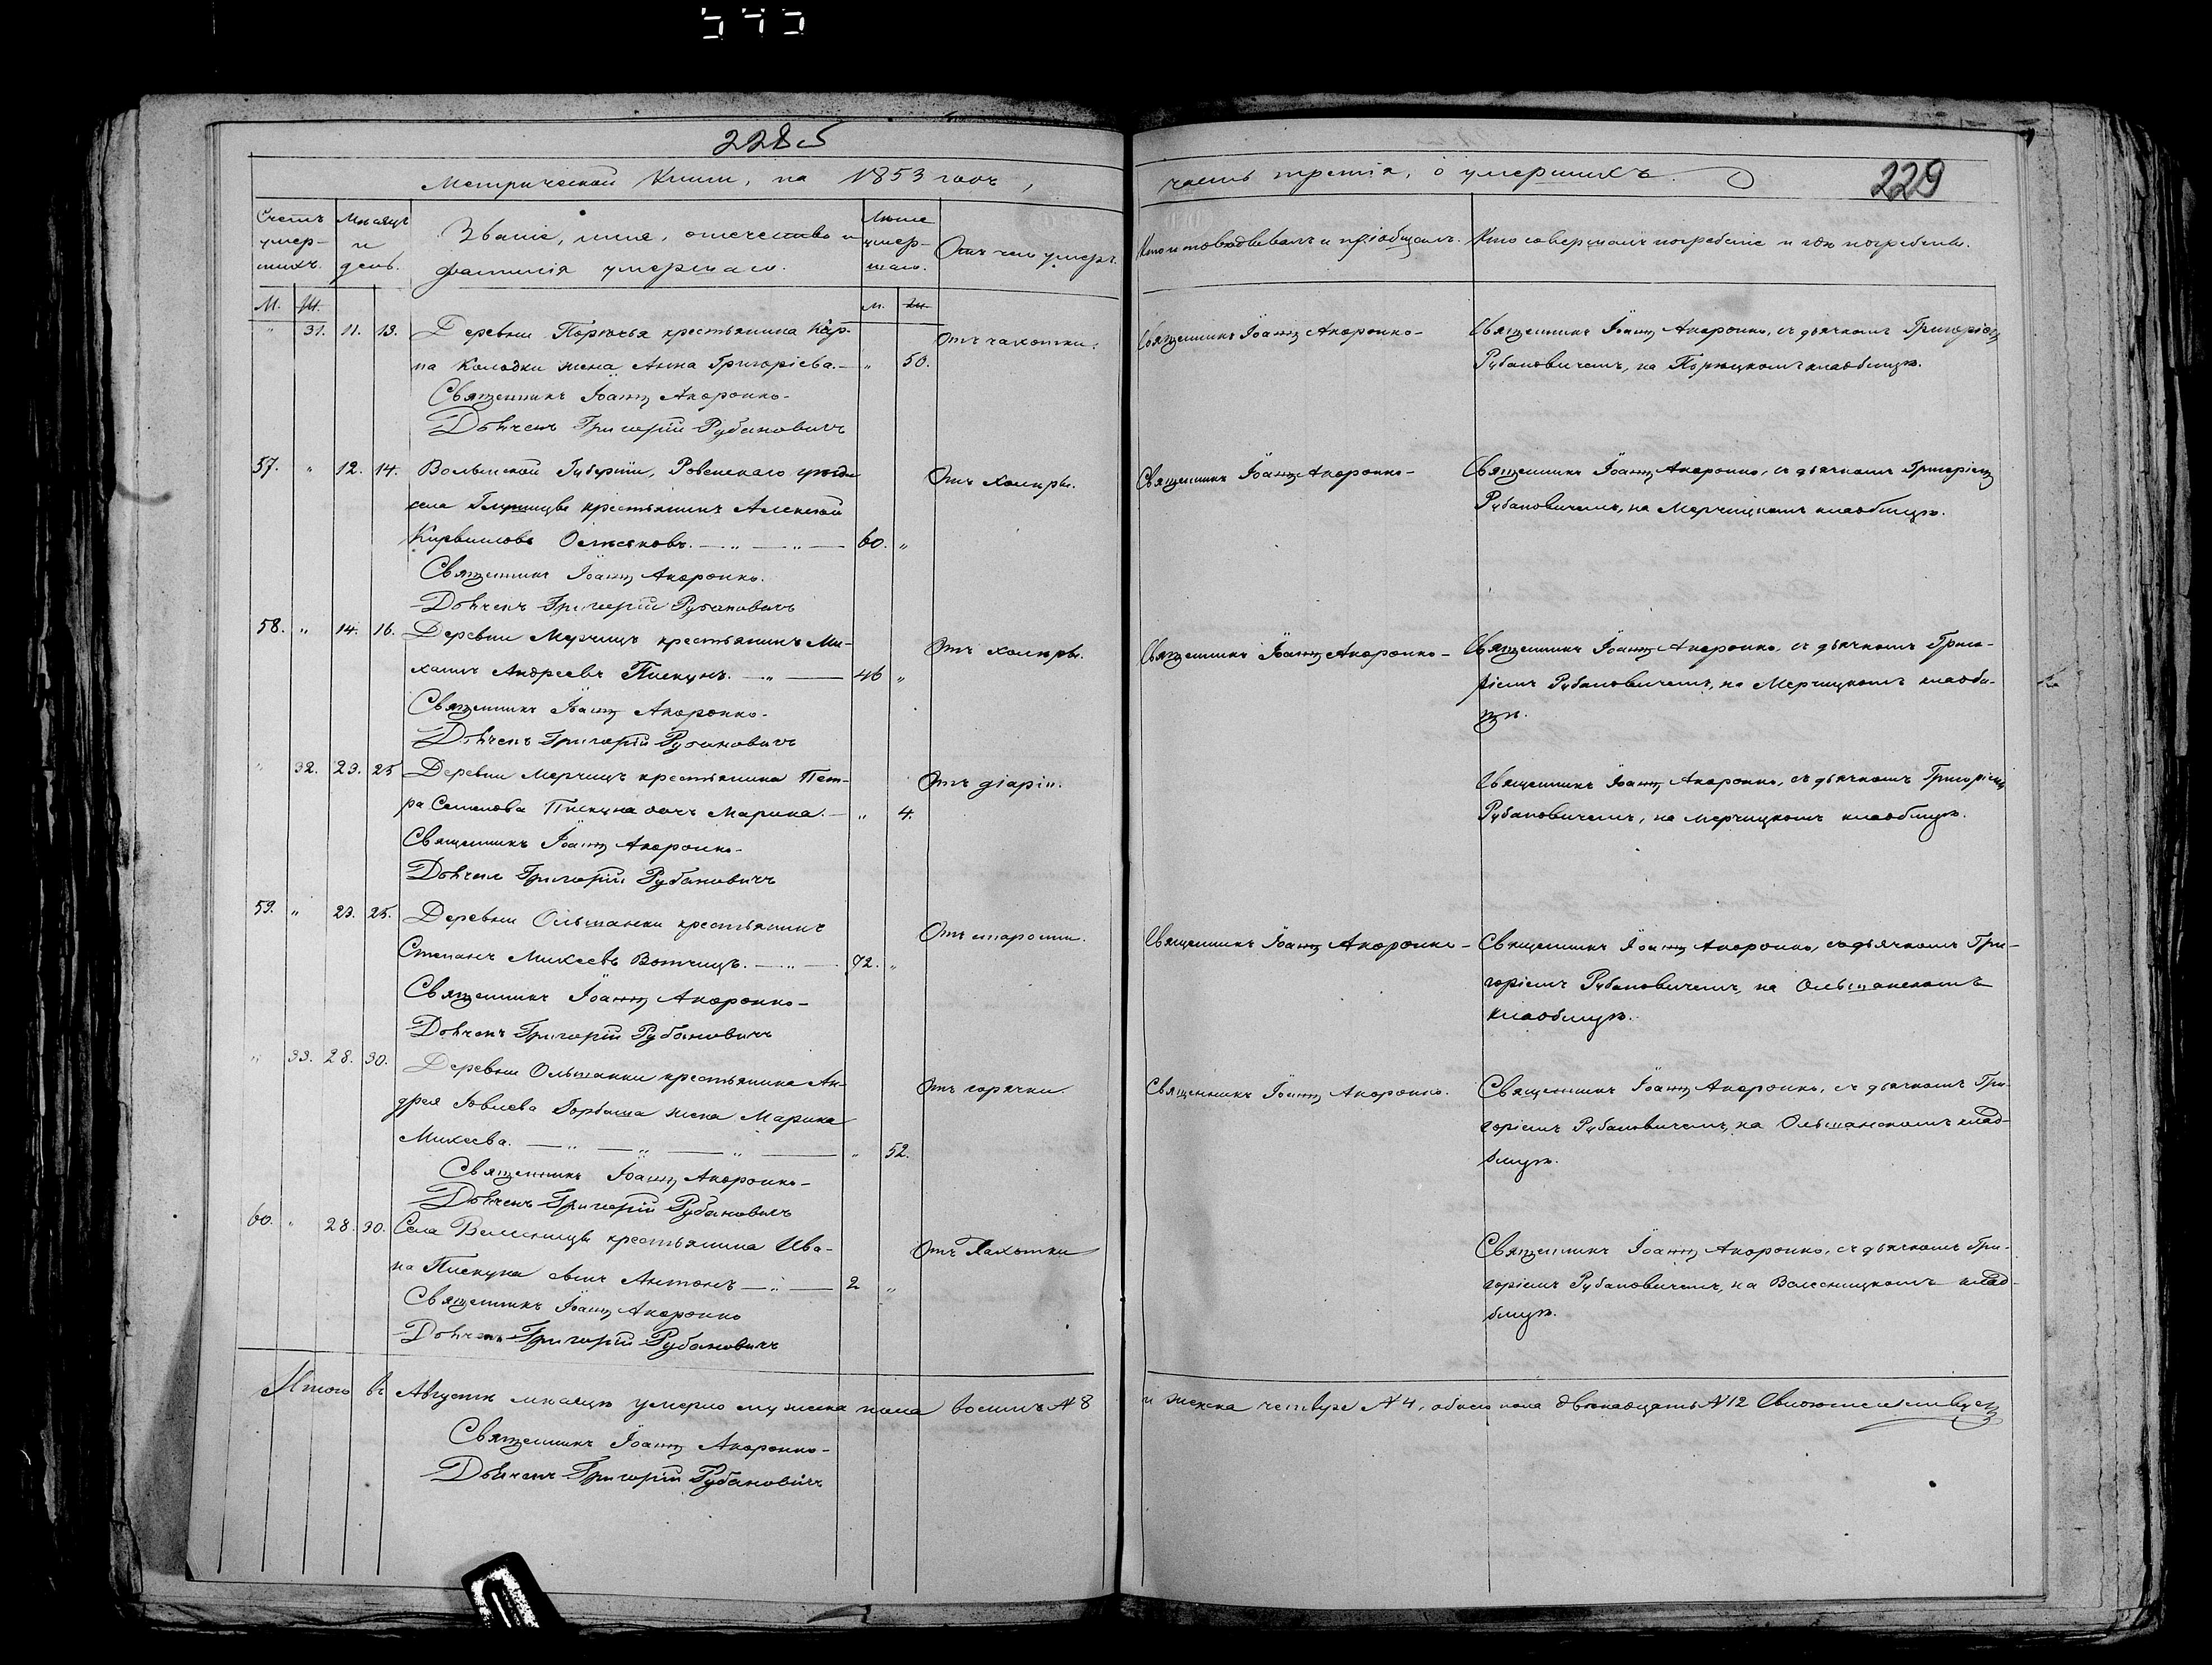 228об
Метрической Книги, на 1853 годъ,
часть третія, о умершихъ.
229
Счетъ умер-шихъ.
Мѣсяцъ и день.
Званіе, имя, отечество и фамилія умершаго.
Лѣта умер-шаго.
Отъ чего умеръ.
Кто исповѣдывалъ и пріобщалъ.
Кто совершалъ погребеніе и гдѣ погребены.
М. Ж. М. Ж.
" 31. 11. 13. Деревни Порѣчья крестьянина Кар-
па Колодки жена Анна Григоріева. — " 50.
Отъ чахотки.
Священникъ Іоаннъ
Священникъ Іоаннъ съ дьячкомъ Григоріемъ
Рубановичемъ, на Порѣцкомъ кладбищѣ.
Священникъ Іоаннъ
Дьячекъ Григорій Рубановичъ
57. " 12. 14. Волынской Губерніи, Ровенскаго уѣзда
села крестьянинъ Алексѣй
60. "
Отъ холеры.
Священникъ Іоаннъ
Священникъ Іоаннъ съ дьячкомъ Григоріемъ
Рубановичемъ, на Мерчицкомъ кладбищѣ.
Священникъ Іоаннъ
Дьячекъ Григорій Рубановичъ
58. " 14. 16. Деревни Мерчицъ крестьянинъ Ми-
хаилъ Андреевъ Пискунъ. — " — 46 "
Отъ холеры.
Священникъ Іоаннъ
Священникъ Іоаннъ съ дьячкомъ Григо-
ріемъ Рубановичемъ, на Мерчицкомъ кладби-
щѣ.
Священникъ Іоаннъ
Дьячекъ Григорій Рубановичъ
" 32. 23. 25 Деревни Мерчицъ крестьянина Пет-
ра Семенова Пискуна дочь Марина. — " 4.
Отъ діаріи.
Священникъ Іоаннъ съ дьячкомъ Григоріемъ
Рубановичемъ, на Мерчицкомъ кладбищѣ.
Священникъ Іоаннъ
Дьячекъ Григорій Рубановичъ
59. " 23. 25. Деревни Ольшанки крестьянинъ
Степанъ Михеевъ Вотчицъ. — " — 72. "
Отъ старости.
Священникъ Іоаннъ
Священникъ Іоаннъ съ дьячкомъ Гри-
горіемъ Рубановичемъ, на Ольшанскомъ
кладбищѣ.
Священникъ Іоаннъ
Дьячекъ Григорій Рубановичъ
" 33. 28. 30. Деревни Ольшанки крестьянина Ан-
дрея Іовлева Горбаша жена Марина
Михеева. — " — " — " 52.
Отъ горячки.
Священникъ Іоаннъ
Священникъ Іоаннъ съ дьячкомъ Гри-
горіемъ Рубановичемъ, на Ольшанскомъ клад-
бищѣ.
Священникъ Іоаннъ
Дьячекъ Григорій Рубановичъ
60. " 28. 30. Села Велесницы крестьянина Ива-
на Пискуна сынъ Антонъ — " — 2 "
Отъ чахотки
Священникъ Іоаннъ съ дьячкомъ Гри-
горіемъ Рубановичемъ, на Велесницкомъ клад-
бищѣ.
Священникъ Іоаннъ
Дьячекъ Григорій Рубановичъ
Итого въ Августѣ мѣсяцѣ умерло мужеска пола восемь № 8
и женска четыре № 4, обоего пола двѣнадцать № 12 Свидѣтельствуемъ
Священникъ Іоаннъ
Дьячекъ Григорій Рубановичъ